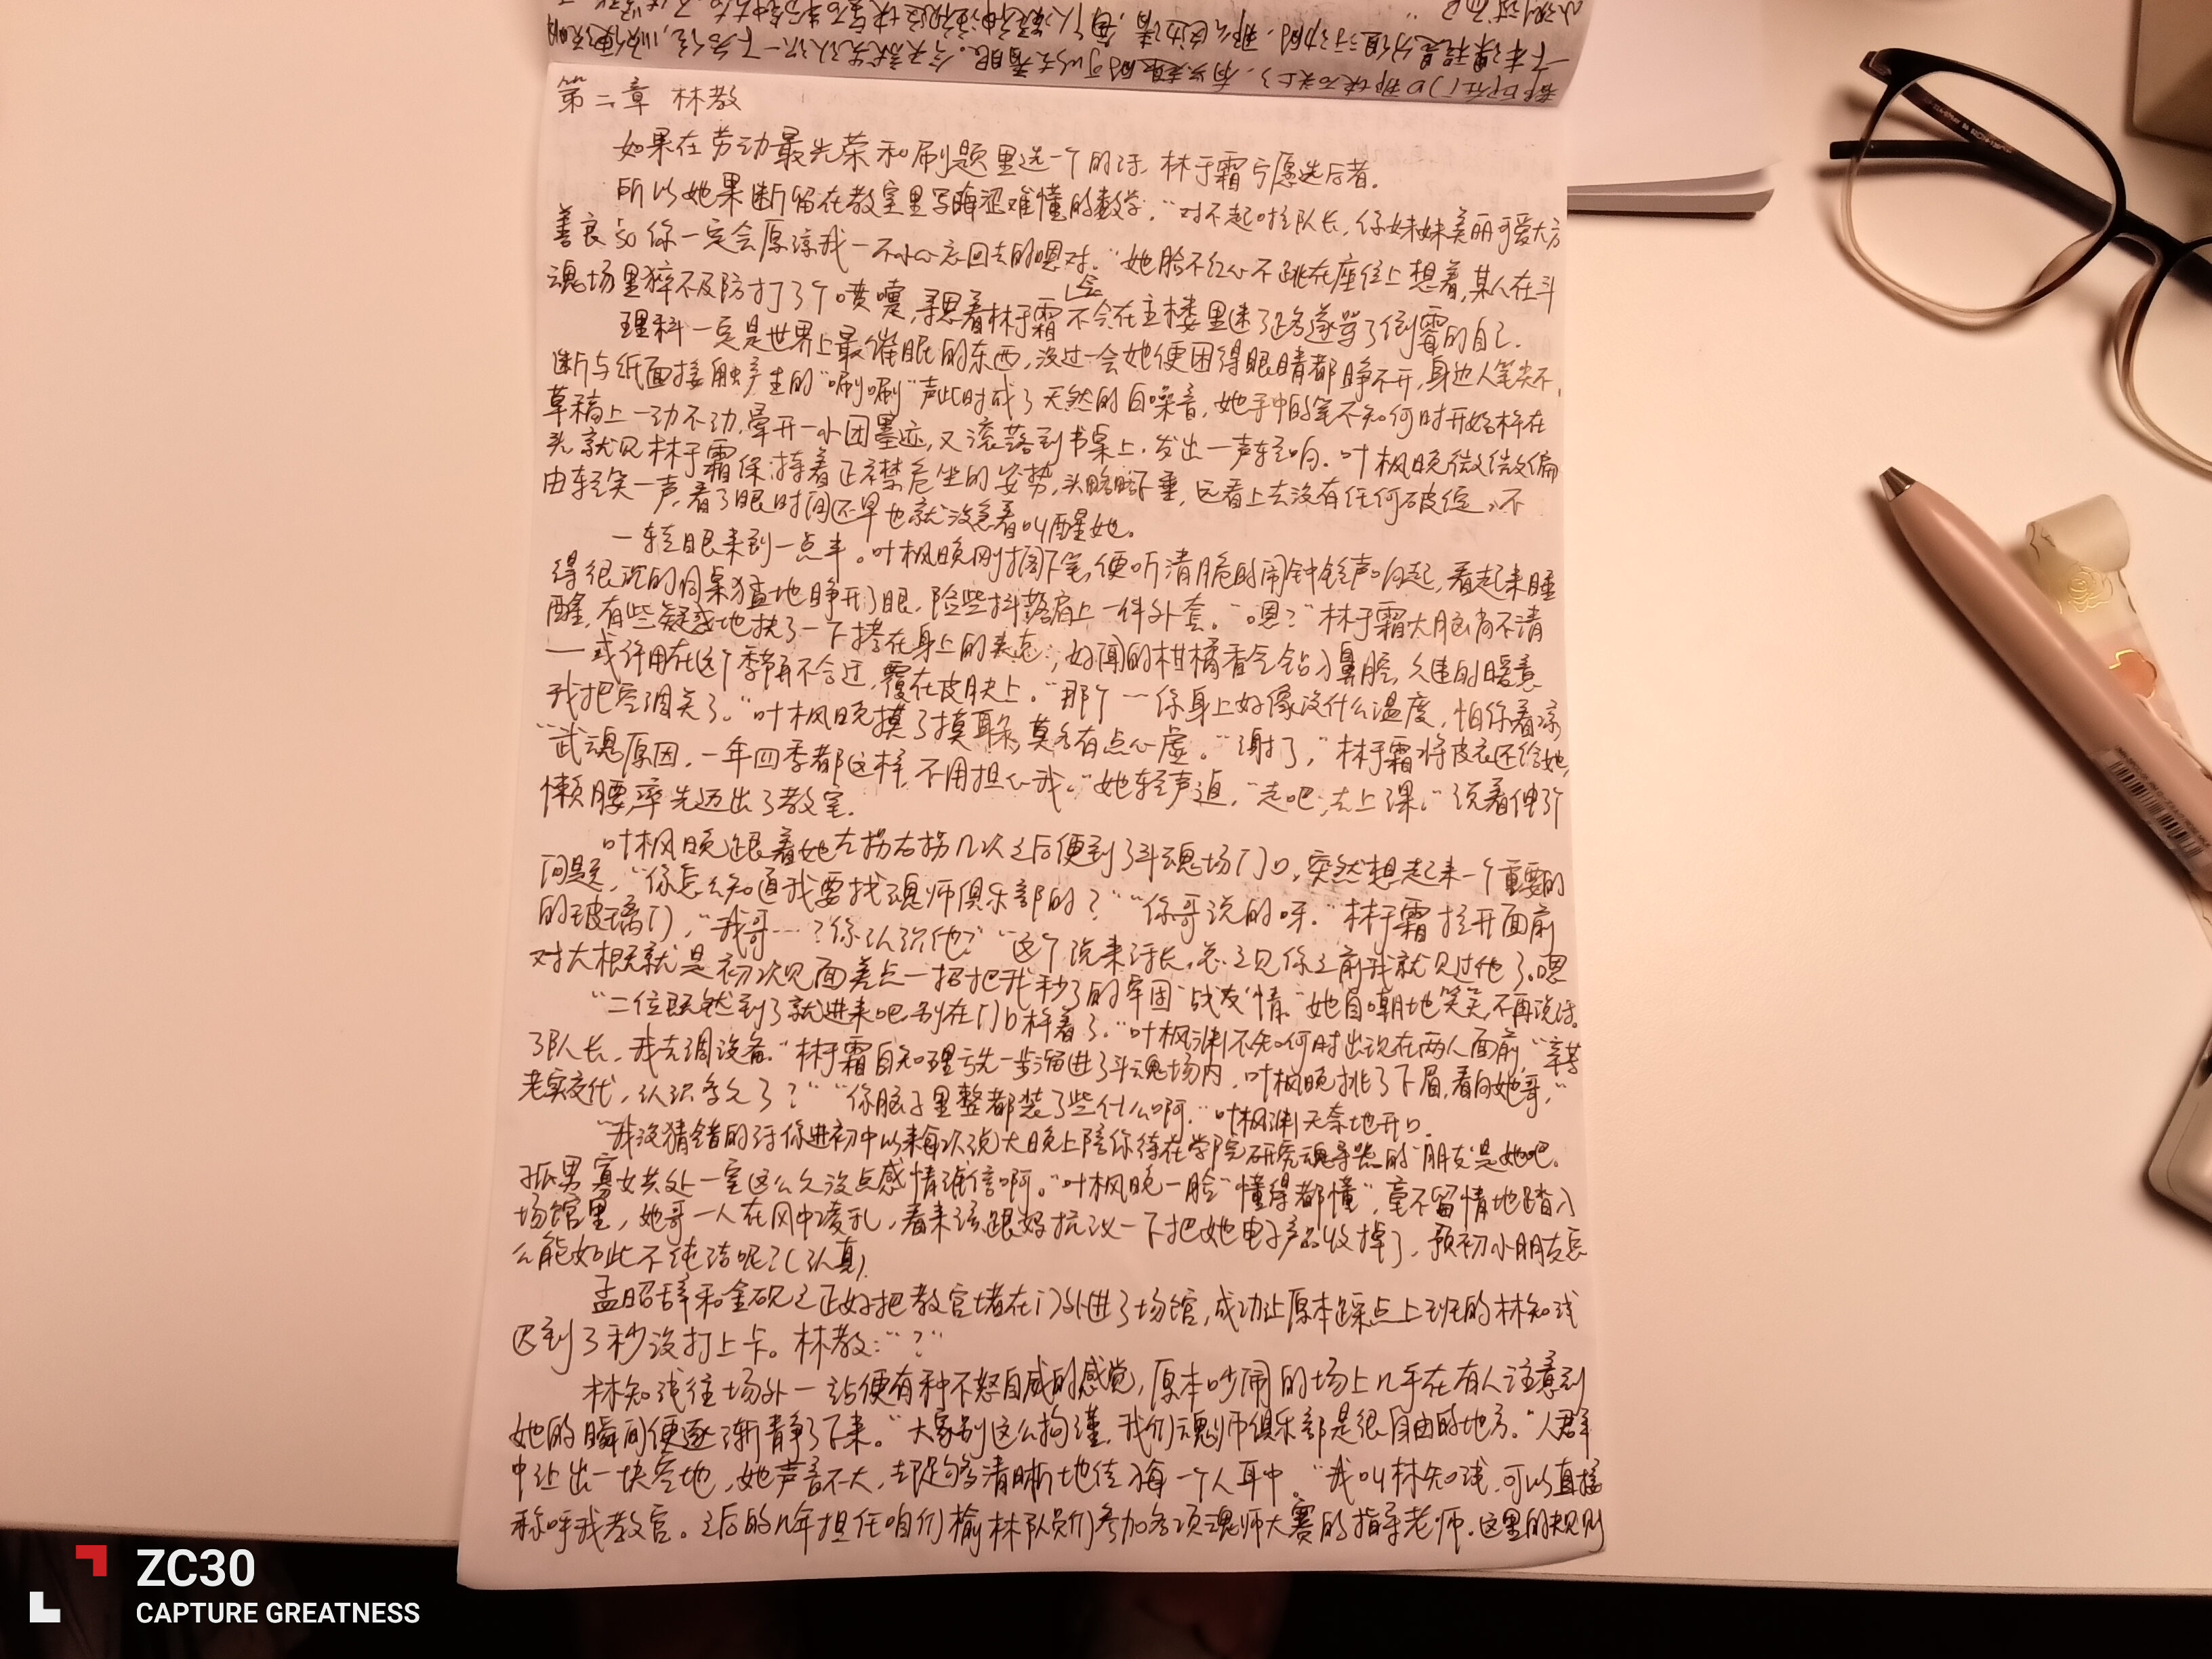 第二章 林教
如果在劳动最光荣和刷题里选一个的话，林于霜宁愿选后者。
所以她果断留在教室里写晦涩难懂的数学。“对不起啦队长，你妹妹美丽可爱大方
善良 so 你一定会原谅我一不小心忘回去的嗯对。”她脸不红心不跳在座位上想着，某人在斗
魂场里猝不及防打了个喷嚏，寻思着林于霜会不会在主楼里迷了路遂骂了倒霉的自己。
理科一定是世界上最催眠的东西，没过一会她便困得眼睛都睁不开，身边人笔尖不
断与纸面接触产生的“唰唰”声此时成了天然的白噪音，她手中的笔不知何时开始杵在
草稿上一动不动，晕开一小团墨迹，又滚落到书桌上，发出一声轻响。叶枫晚微微偏
头，就见林于霜保持着正襟危坐的姿势，头略略下垂，远看上去没有任何破绽，不
由轻笑一声，看了眼时间还早也就没急着叫醒她。
一转眼来到一点半。叶枫晚刚搁下笔，便听清脆的闹钟铃声响起，看起来睡
得很沉的同桌猛地睁开了眼，险些抖落肩上一件外套。“嗯？”林于霜大脑尚不清
醒，有些疑惑地扶了一下搭在身上的夹克，好闻的柑橘香气钻入鼻腔，久违的暖意
——或许用在这个季节再不合适，覆在皮肤上。“那个……你身上好像没什么温度，怕你着凉
我把空调关了。”叶枫晚摸了摸耳朵，莫名有点心虚。“谢了，”林于霜将皮衣还给她，
“武魂原因，一年四季都这样，不用担心我。”她轻声道，“走吧，去上课。”说着伸了个
懒腰，率先迈出了教室。
叶枫晚跟着她左拐右拐几次之后便到了斗魂场门口，突然想起来一个重要的
问题，“你怎么知道我要找魂师俱乐部的？”“你哥说的呀。”林于霜拉开面前
的玻璃门，“我哥……？你认识他？”“这个说来话长，总之见你之前我就见过他了。嗯
对大概就是初次见面差点一招把我秒了的牢固‘战友’情。”她自嘲地笑笑，不再说话。
“二位既然到了就进来吧，别在门口杵着了。”叶枫渊不知何时出现在两人面前，“辛苦
了队长，我去调设备。”林于霜自知理亏先一步溜进了斗魂场内，叶枫晚挑了下眉，看向她哥，“
老实交代，认识多久了？”“你脑子里整都装了些什么啊。”叶枫渊无奈地开口。
“我没猜错的话你进初中以来每次说大晚上陪你待在学院研究魂导器的‘朋友’是她吧。
孤男寡女共处一室这么久没点感情谁信啊。”叶枫晚一脸“懂得都懂”，毫不留情地踏入
场馆里，她哥一人在风中凌乱，看来该跟妈抗议一下把她电子产品收掉了，预初小朋友怎
么能如此不纯洁呢？（认真）
孟昭辞和金砚之正好把教官堵在门外进了场馆，成功让原本踩点上班的林知浅
迟到了3秒没打上卡。林教：“？”
林知浅往场外一站便有种不怒自威的感觉，原本吵闹的场上几乎在有人注意到
她的瞬间便逐渐静了下来。“大家别这么拘谨，我们魂师俱乐部是很自由的地方。”人群
中让出一块空地，她声音不大，却足够清晰地传入每一个人耳中。“我叫林知浅，可以直接
称呼我教官。之后的几年担任咱们榆林队员们参加各项魂师大赛的指导老师。这里的规则
ZC30
CAPTURE GREATNESS